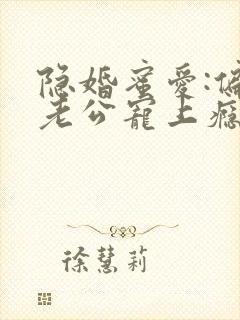 隐婚蜜爱:偏
老公宠上瘾
徐慧莉